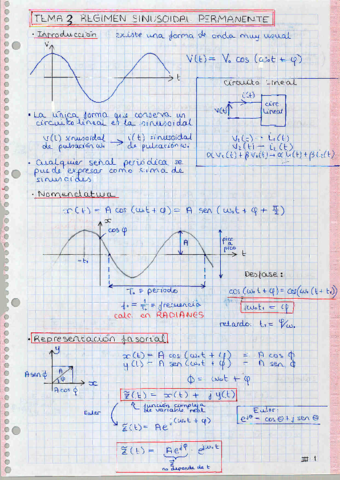 TEMA 3 REGIMEN SINUSOIDAL PERMANENTE
· Introducción existe una forma de onda muy usual
V
t
V(t) = V₀ cos (ω₀t + φ)
circuito lineal
i(t)
V(t)
circ
lineal
V₁(t) → i₁(t)
V₂(t) → i₂(t)
αV₁(t) + βV₂(t) → αi₁(t) + βi₂(t)
• La única forma que conserva un
circuito lineal es la sinusoidal
V(t) sinusoidal → i(t) sinusoidal
de pulsación ω₀ de pulsación ω₀
• Cualquier señal periódica se
puede expresar como suma de
sinusoides
· Nomenclatura
x(t) = A cos (ω₀t + φ) = A sen (ω₀t + φ + π/2)
x
cosφ
A
pico
a
pico
-t₀
t
T₀ = periodo
f₀ = 1/T₀ = frecuencia
calc en RADIANES
Desfase:
cos(ω₀t + φ) = cos(ω₀(t + t₀))
ω₀t₀ = φ
retardo t₀ = φ/ω₀
· Representación fasorial
y
A senϕ
A
ϕ
x
A cosϕ
x(t) = A cos (ω₀t + φ) = A cos ϕ
y(t) = A sen (ω₀t + φ) = A sen ϕ
ϕ = ω₀t + φ
z̄(t) = x(t) + j y(t)
función compleja
de variable real
Euler
z̄(t) = A e^j(ω₀t + φ)
Euler:
e^jθ = cos θ + j sen θ
z̄(t) = A e^jφ e^jω₀t
no depende de t
III 1